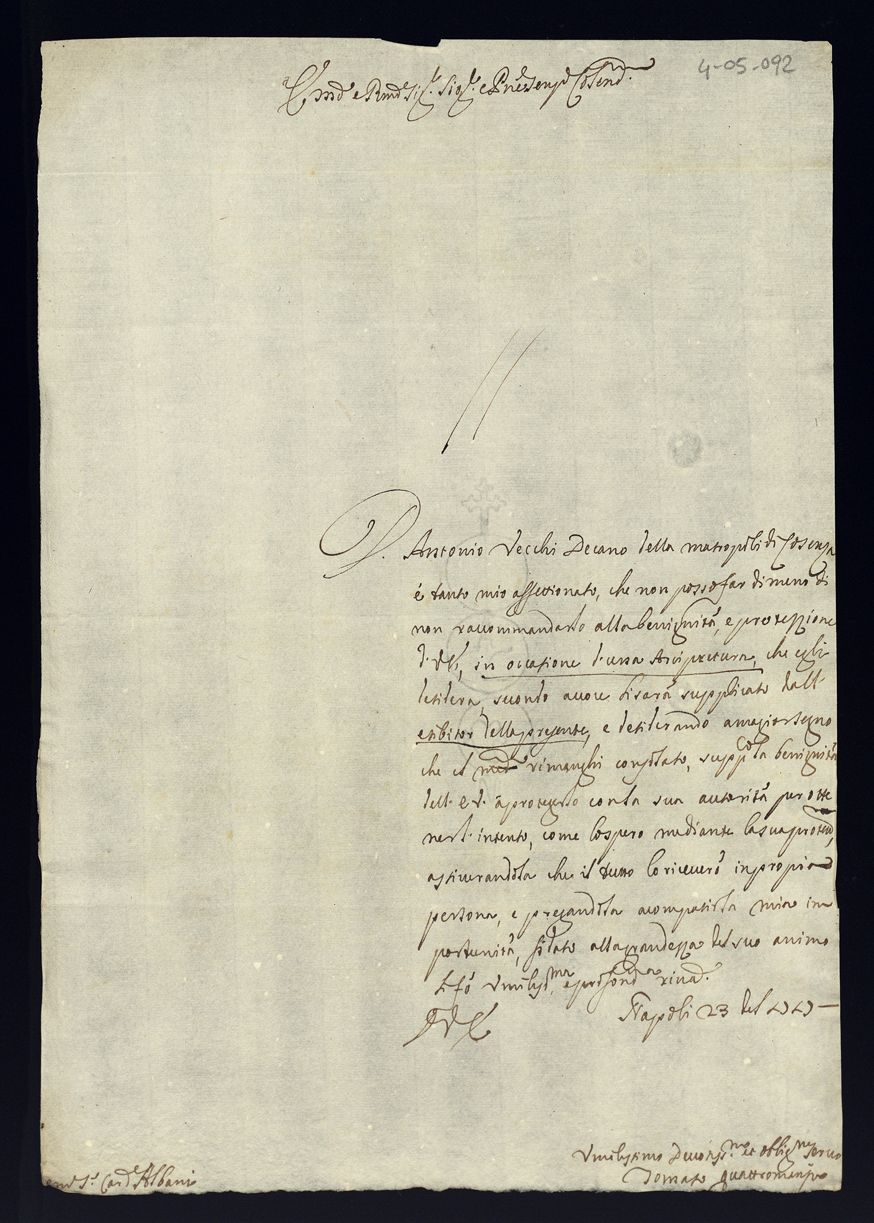 4-05-092
Em.º e Rmo Sig.r Sig.r e Pne
D. Antonio Vecchi Decano della matropoli di Cosenza
é tanto mio affectionato, che non posso far di meno di
non raccommandarlo alla benignità, e protezzione
di V.E., in occasione d'una Arcipretura, che egli
desidera, secondo a voce li sarà supplicato dall'
esibitor della presente, e desiderando a maggior segno
che il med.º rimanghi consolato, supp.co la benignità
dell' E.V. a proteggerlo con la sua autorità per otte
ner l'intento, come lo spero mediante la sua protez.e,
assicurandola che il tutto lo riceverò in propria
persona, e pregandola a compatir la mia im
portunità, fidato alla grandezza del suo animo
Li fó umiliss.ma, e profond.a river.
D.V.E. Napoli 23 del
Umilissimo Devotiss.mo et oblig.mo servo
Tomaso Quattromani
Em.º S.r Card.e Albani